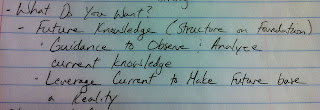 - What Do You Want?
- Future Knowledge (Structure on Foundation)
· Guidance to Observe & Analyze
current knowledge
· Leverage Current to Make Future base
a Reality